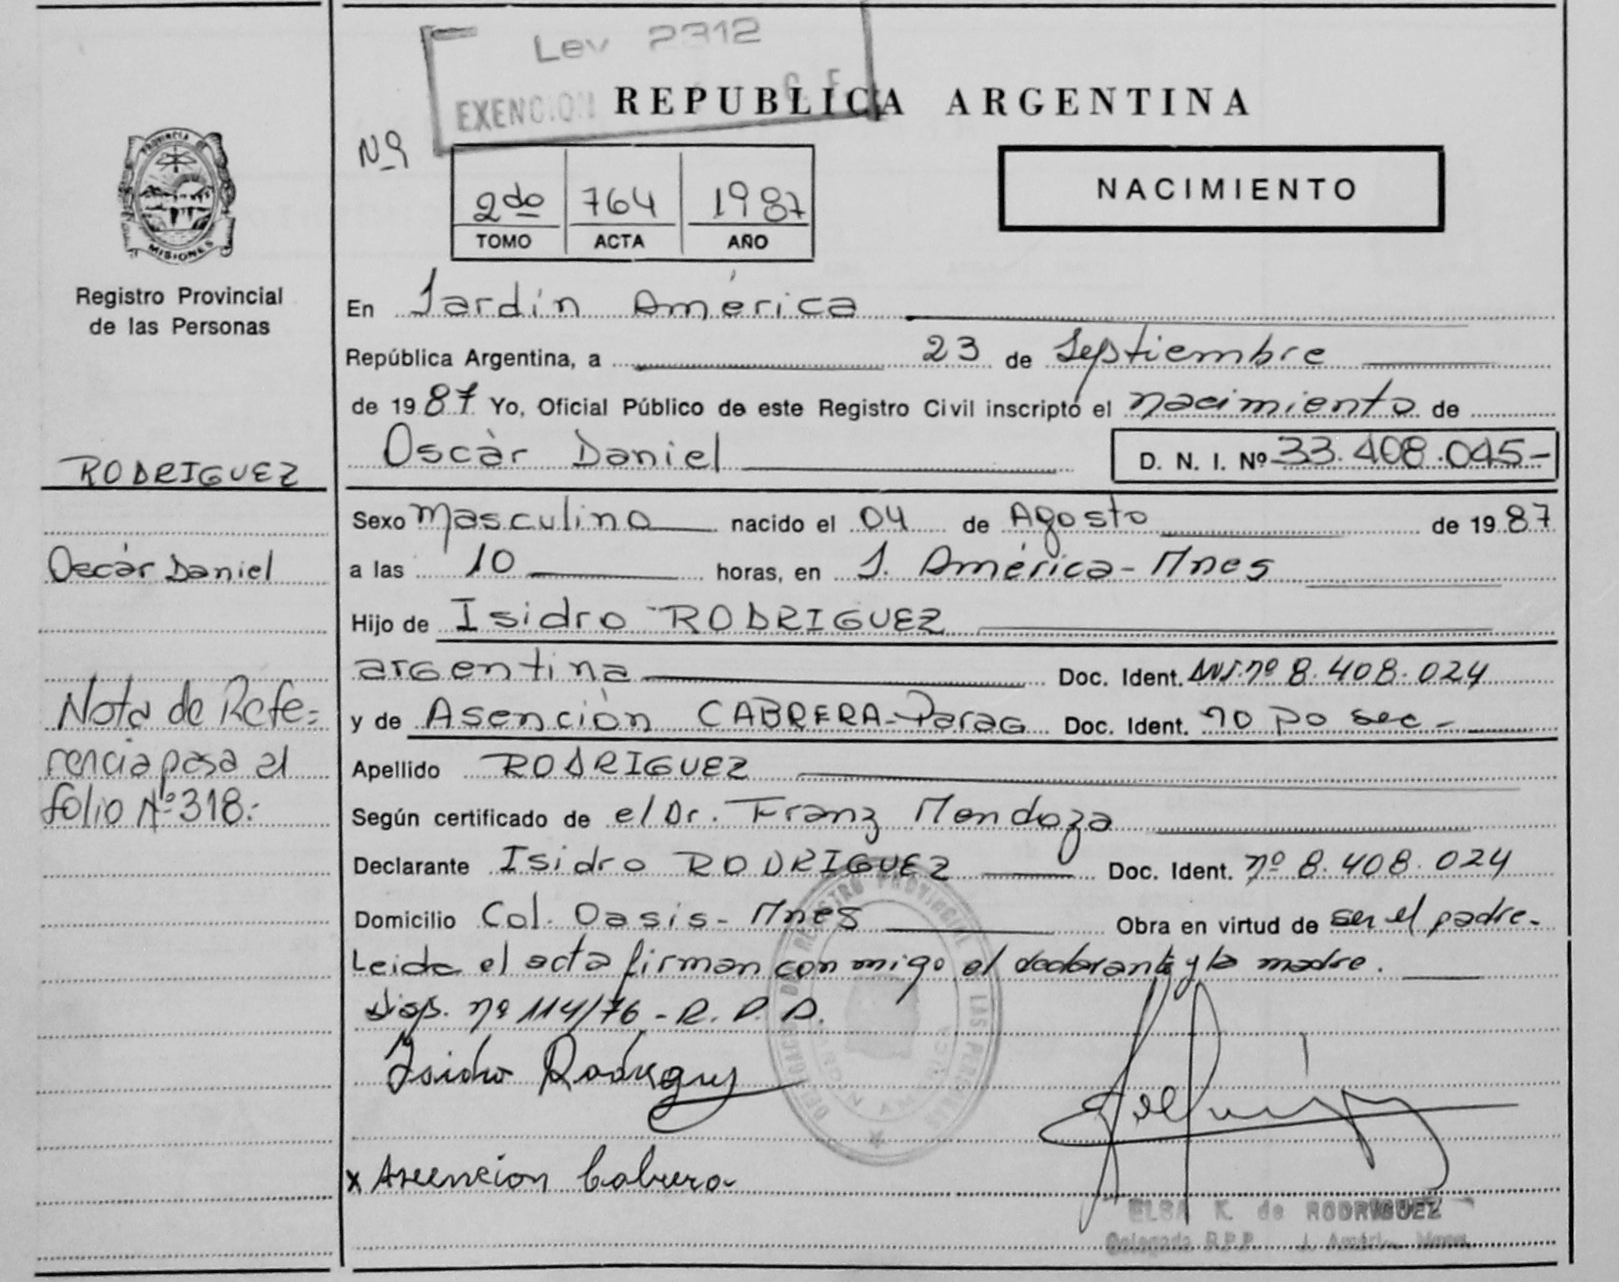 Ley 2312
EXENCION G. F.
REPUBLICA ARGENTINA
Nº
2do 764 1987
TOMO ACTA AÑO
NACIMIENTO
PROVINCIA DE
MISIONES
Registro Provincial
de las Personas
En Jardín América
República Argentina, a 23 de Septiembre
de 1987 Yo, Oficial Público de este Registro Civil inscripto el nacimiento de
Oscàr Daniel D. N. I. Nº 33.408.045-
RODRIGUEZ
Sexo Masculino nacido el 04 de Agosto de 1987
Oscàr Daniel
a las 10 horas, en J. América - Mnes
Hijo de Isidro RODRIGUEZ
argentina Doc. Ident. DNI. nº 8.408.024
y de Asención CABRERA - Parag Doc. Ident. no po see -
Nota de Refe=
rencia pasa al
folio Nº 318.-
Apellido RODRIGUEZ
Según certificado de el Dr. Franz Mendoza
Declarante Isidro RODRIGUEZ Doc. Ident. nº 8.408.024
Domicilio Col. Oasis - Mnes Obra en virtud de ser el padre.
Leida el acta firman con migo el declarante y la madre.
Disp. nº 114/76 - R. P. P.
Isidro Rodriguez
DELEGACION DEL REGISTRO PROVINCIAL DE LAS PERSONAS
JARDIN AMERICA
x Asencion Cabrera
ELSA K. de RODRIGUEZ
Delegada R.P.P. J. Améri